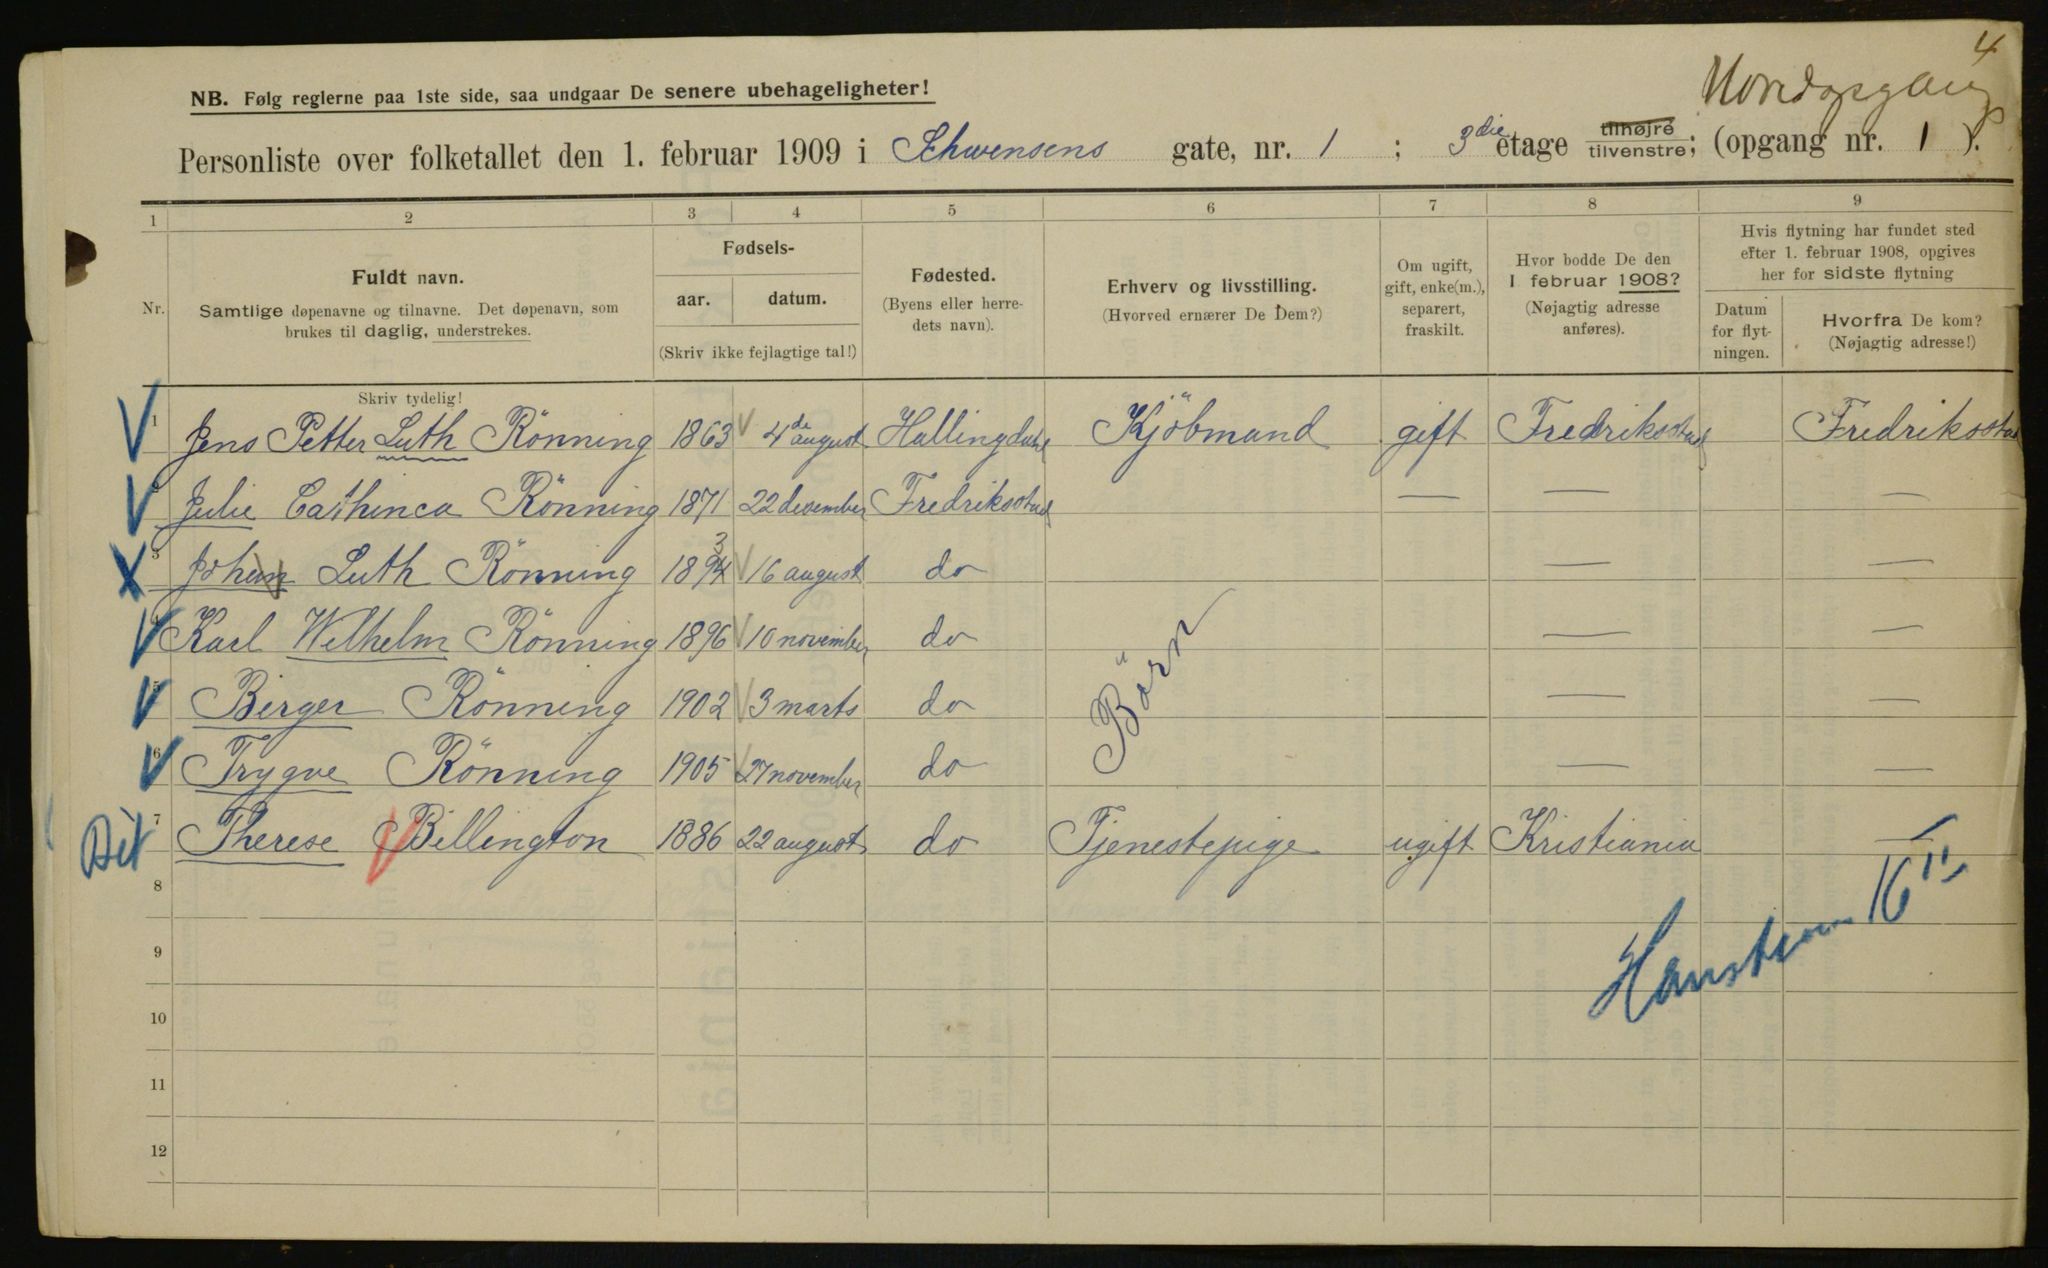 4
Hovedopgang
NB. Følg reglerne paa 1ste side, saa undgaar De senere ubehageligheter!
Personliste over folketallet den 1. februar 1909 i Schwensens gate, nr. 1 ; 3die etage tilhøjre tilvenstre; (opgang nr. 1 ).
1 2 3 4 5 6 7 8 9
Nr.
Fuldt navn.
Samtlige døpenavne og tilnavne. Det døpenavn, som
brukes til daglig, understrekes.
Fødsels-
aar. datum.
(Skriv ikke fejlagtige tal!)
Fødested.
(Byens eller herre-
dets navn).
Erhverv og livsstilling.
(Hvorved ernærer De Dem?)
Om ugift,
gift, enke(m.),
separert,
fraskilt.
Hvor bodde De den
1 februar 1908?
(Nøjagtig adresse
anføres).
Hvis flytning har fundet sted
efter 1. februar 1908, opgives
her for sidste flytning
Datum
for flyt-
ningen.
Hvorfra De kom?
(Nøjagtig adresse!)
Skriv tydelig!
1 Jens Petter Luth Rönning 1863 4de august Hallingdal Kjöbmand gift Fredriksstad Fredriksstad
2 Julie Cathinca Rönning 1871 22 desember Fredriksstad — — —
3 Johan Luth Rönning 1894 3 16 august do — —
4 Karl Wilhelm Rönning 1896 10 november do — —
Börn
5 Birger Rönning 1902 3 marts do — —
6 Trygve Rönning 1905 27 november do — —
Dit 7 Therese Billington 1886 22 august do Tjenestepige ugift Kristiania —
8
9
10
11
12
16 11